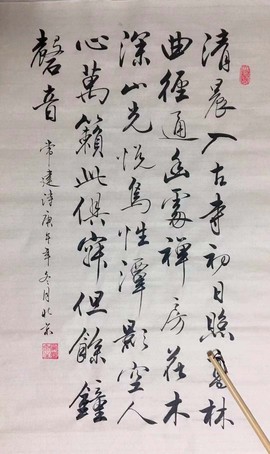 清晨入古寺初日照高林
曲徑通幽處禪房花木
深山光悦鳥性潭影空人
心萬籟此俱寂但餘鐘
磬音
常建詩庚午年冬月北京